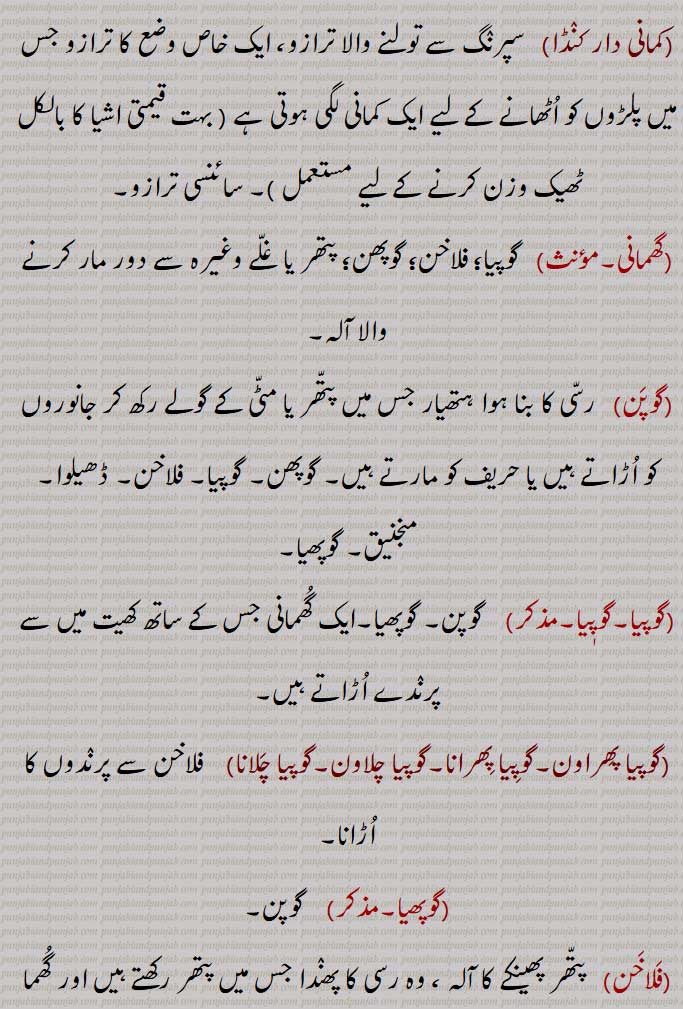 (کمانی دار کنڈا) سپرنگ سے تولنے والا ترازو، ایک خاص وضع کا ترازو جس
میں پلڑوں کو اُٹھانے کے لیے ایک کمانی لگی ہوتی ہے (بہت قیمتی اشیا کا بالکل
ٹھیک وزن کرنے کے لیے مستعمل)۔ سائنسی ترازو۔
(گھمانی۔مؤنث) گوپیا؛ فلاخن؛ گوپھن؛ پتھر یا غلّے وغیرہ سے دور مار کرنے
والا آلہ۔
(گوپَن) رسّی کا بنا ہوا ہتھیار جس میں پتھّر یا مٹّی کے گولے رکھ کر جانوروں
کو اُڑاتے ہیں یا حریف کو مارتے ہیں۔ گوپھن۔ گوپیا۔ فلاخن۔ ڈھیلوا۔
منجنیق۔ گوپھیا۔
(گوپیا۔گوپِیا۔مذکر) گوپن۔ گوپھیا۔ایک گُھمانی جس کے ساتھ کھیت میں سے
پرندے اُڑاتے ہیں۔
(گوپیا پِھراون۔گوپِیا پِھرانا۔گوپیا چلاون۔گوپیا چَلانا) فلاخن سے پرندوں کا
اُڑانا۔
(گوپھیا۔مذکر) گوپن۔
(فَلاخَن) پتھّر پھینکے کا آلہ، وہ رسی کا پھندا جس میں پتھر رکھتے ہیں اور گُھما